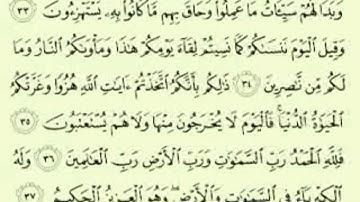 وَبَدَا لَهُمْ سَيِّـَٔاتُ مَا عَمِلُوا۟ وَحَاقَ بِهِم مَّا كَانُوا۟ بِهِۦ يَسْتَهْزِءُونَ ٣٣
وَقِيلَ ٱلْيَوْمَ نَنسَىٰكُمْ كَمَا نَسِيتُمْ لِقَآءَ يَوْمِكُمْ هَٰذَا وَمَأْوَىٰكُمُ ٱلنَّارُ وَمَا
لَكُم مِّن نَّٰصِرِينَ ٣٤ ذَٰلِكُم بِأَنَّكُمُ ٱتَّخَذْتُمْ ءَايَٰتِ ٱللَّهِ هُزُوًا وَغَرَّتْكُمُ
ٱلْحَيَوٰةُ ٱلدُّنْيَا ۚ فَٱلْيَوْمَ لَا يُخْرَجُونَ مِنْهَا وَلَا هُمْ يُسْتَعْتَبُونَ
٣٥ فَلِلَّهِ ٱلْحَمْدُ رَبِّ ٱلسَّمَٰوَٰتِ وَرَبِّ ٱلْأَرْضِ رَبِّ ٱلْعَٰلَمِينَ ٣٦ وَلَهُ
ٱلْكِبْرِيَآءُ فِى ٱلسَّمَٰوَٰتِ وَٱلْأَرْضِ ۖ وَهُوَ ٱلْعَزِيزُ ٱلْحَكِيمُ ٣٧